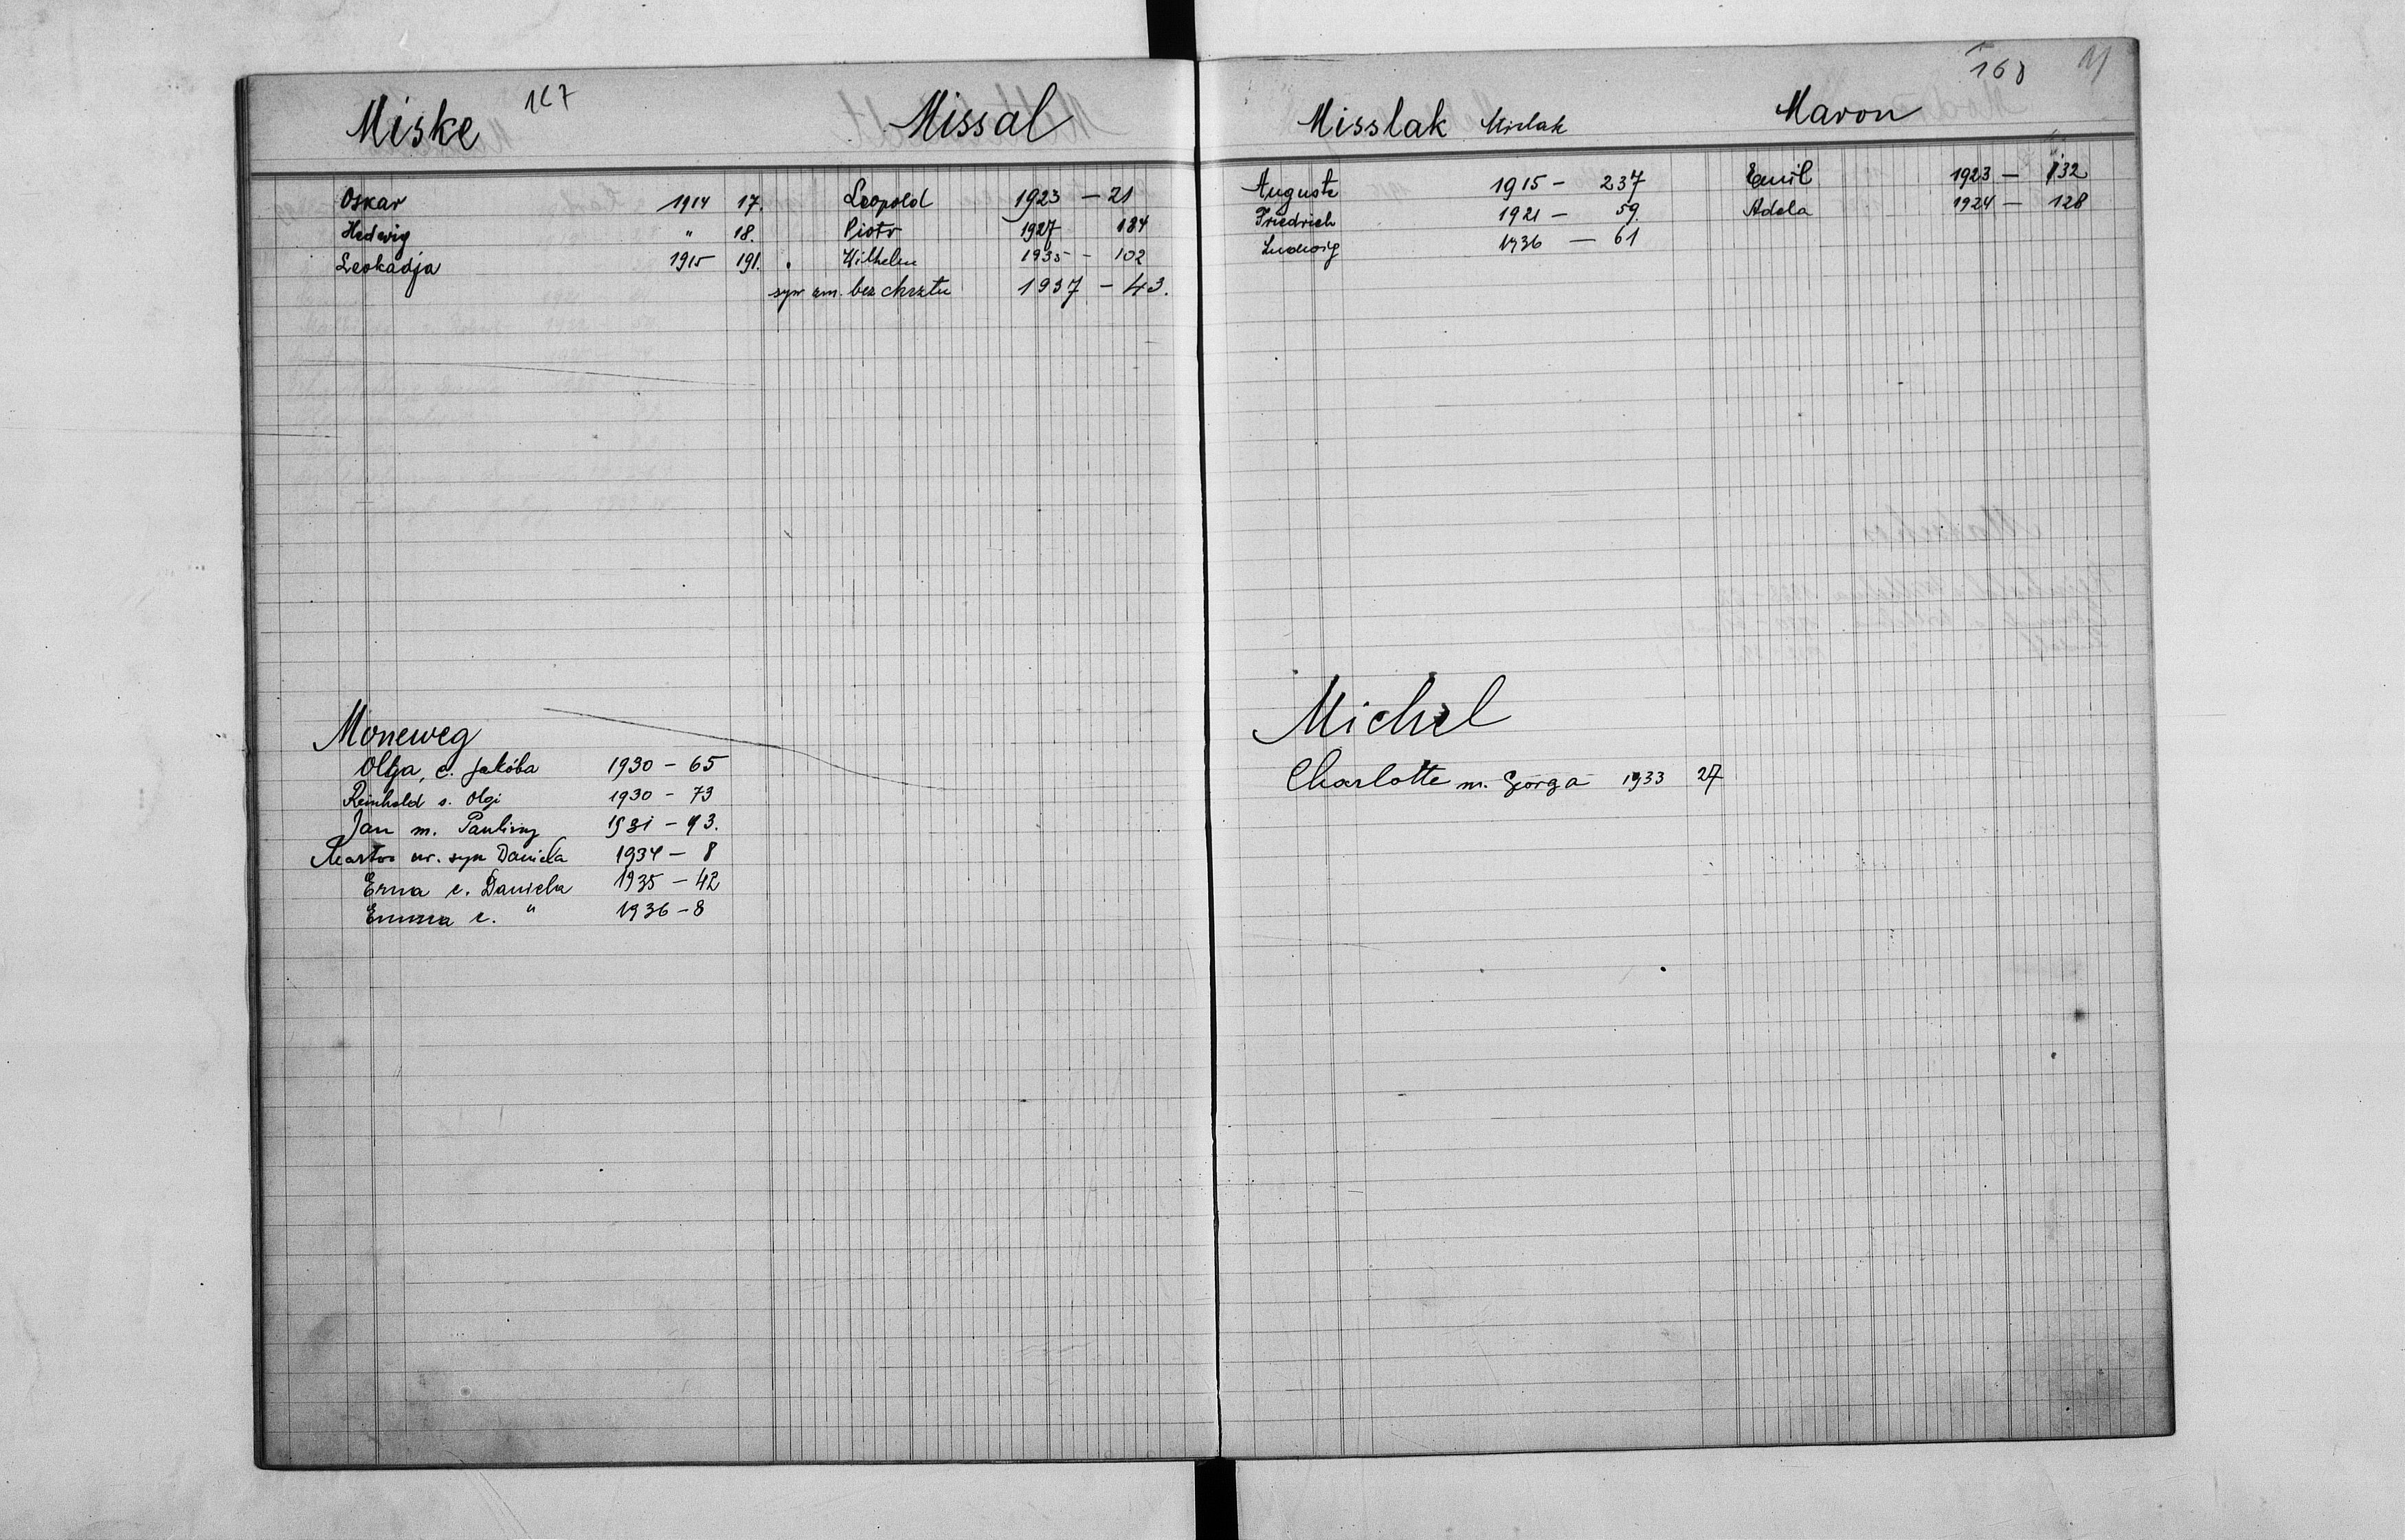 167
Miske
Oskar 1914 17.
Hedwig " 18.
Leokadja 1915 191.
Missal
Leopold 1923 — 21
Piotr 1927 184
Wilhelm 1935 - 102
syn zm. bez chrztu 1937 - 43.
Moneweg
Olga, c. Jakóba 1930 - 65
Reinhold s. Olgi 1930 - 73
Jan m. Pauliny 1931 - 93.
Martwo ur. syn Daniela 1934 - 8
Erna c. Daniela 1935 - 42
Emma c. " 1936 - 8
168 M
Misslak Mislak
Auguste 1915 - 237
Friedrich 1921 - 59
Ludwig 1936 — 61
Maron
Emil 1923 — 132
Adela 1924 — 128
Michel
Charlotte m. Görga 1933 27